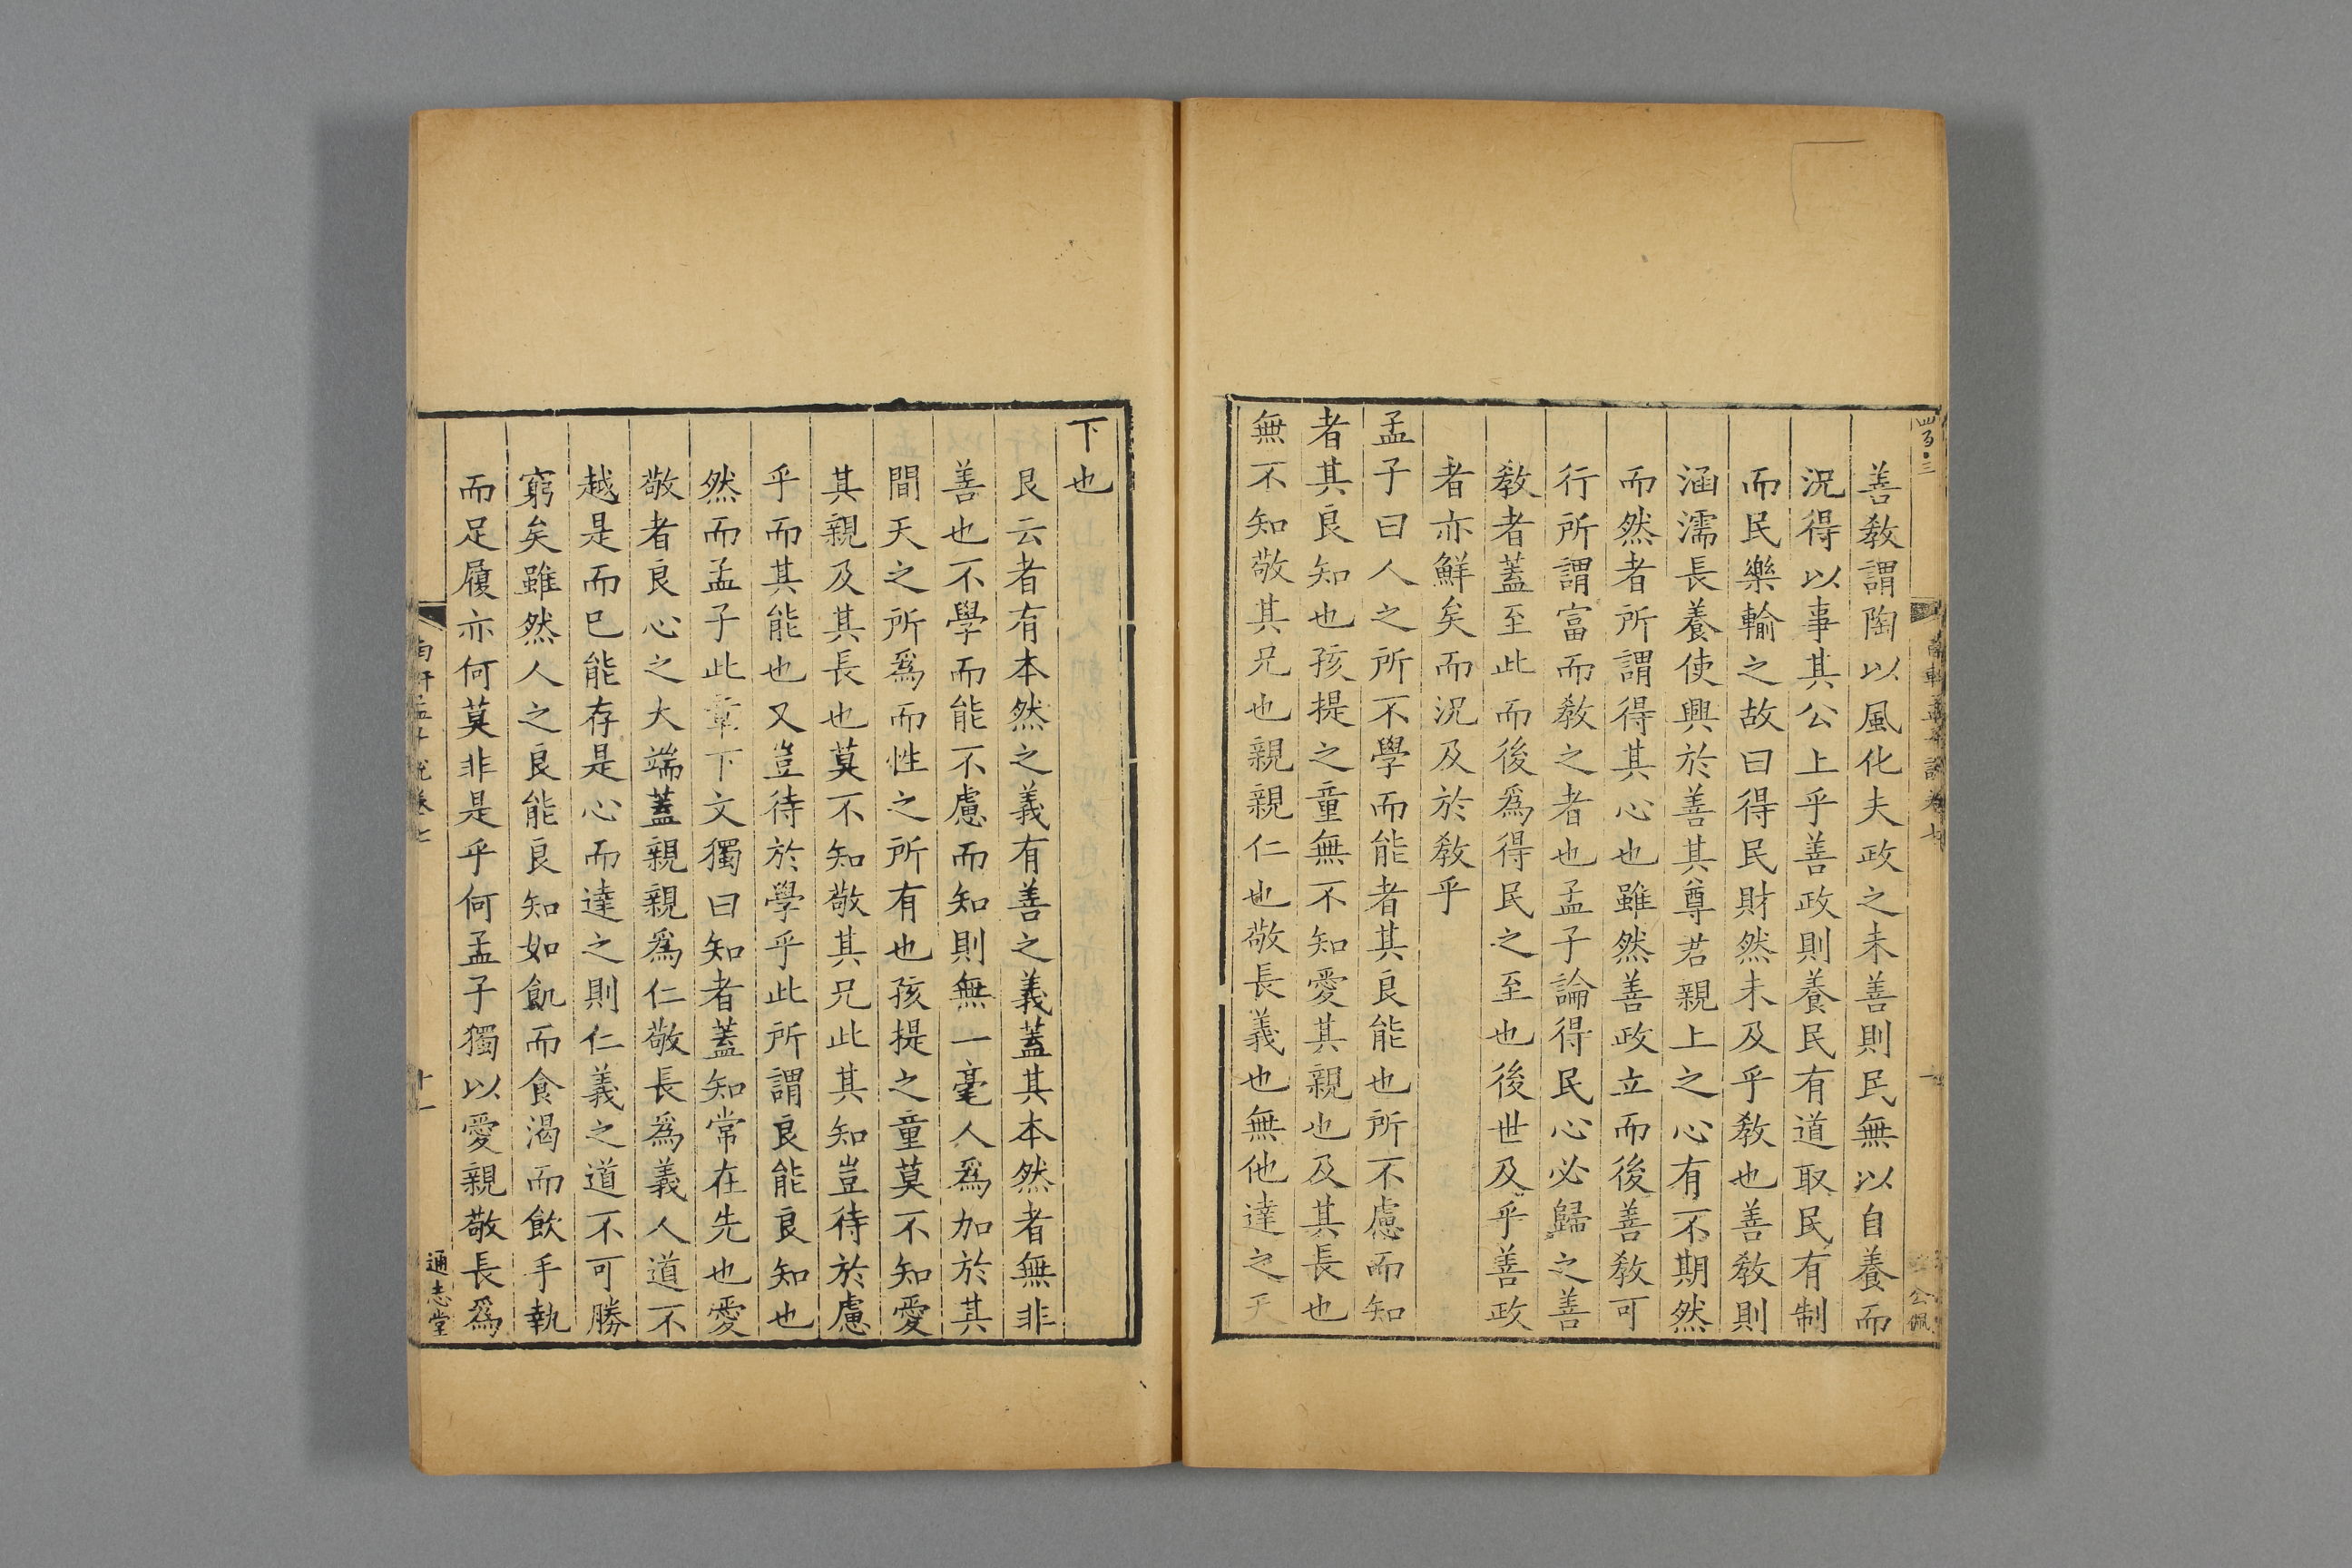 善敎謂陶以風化夫政之未善則民無以自養而
況得以事其公上乎善政則養民有道取民有制
而民樂輸之故曰得民財然未及乎敎也善敎則
涵濡長養使興於善其尊君親上之心有不期然
而然者所謂得其心也雖然善政立而後善敎可
行所謂富而敎之者也孟子論得民心必歸之善
敎者蓋至此而後爲得民之至也後世及乎善政
者亦鮮矣而況及於敎乎
孟子曰人之所不學而能者其良能也所不慮而知
者其良知也孩提之童無不知愛其親也及其長也
無不知敬其兄也親親仁也敬長義也無他達之天
下也
良云者有本然之義有善之義蓋其本然者無非
善也不學而能不慮而知則無一毫人爲加於其
間天之所爲而性之所有也孩提之童莫不知愛
其親及其長也莫不知敬其兄此其知豈待於慮
乎而其能也又豈待於學乎此所謂良能良知也
然而孟子此章下文獨曰知者蓋知常在先也愛
敬者良心之大端蓋親親爲仁敬長爲義人道不
越是而已能存是心而達之則仁義之道不可勝
窮矣雖然人之良能良知如飢而食渴而飲手執
而足履亦何莫非是乎何孟子獨以愛親敬長爲
南軒孟子說卷七
十一
通志堂